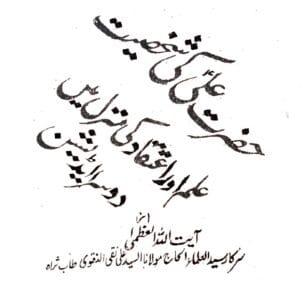 حضرت علیؑ کی شخصیت
علم اور اعتقاد کی منزل میں
دوسرا ایڈیشن
از
آیت اللہ العظمیٰ
سرکار سید العلماء الحاج مولانا السید علی نقی النقوی طاب ثراہ